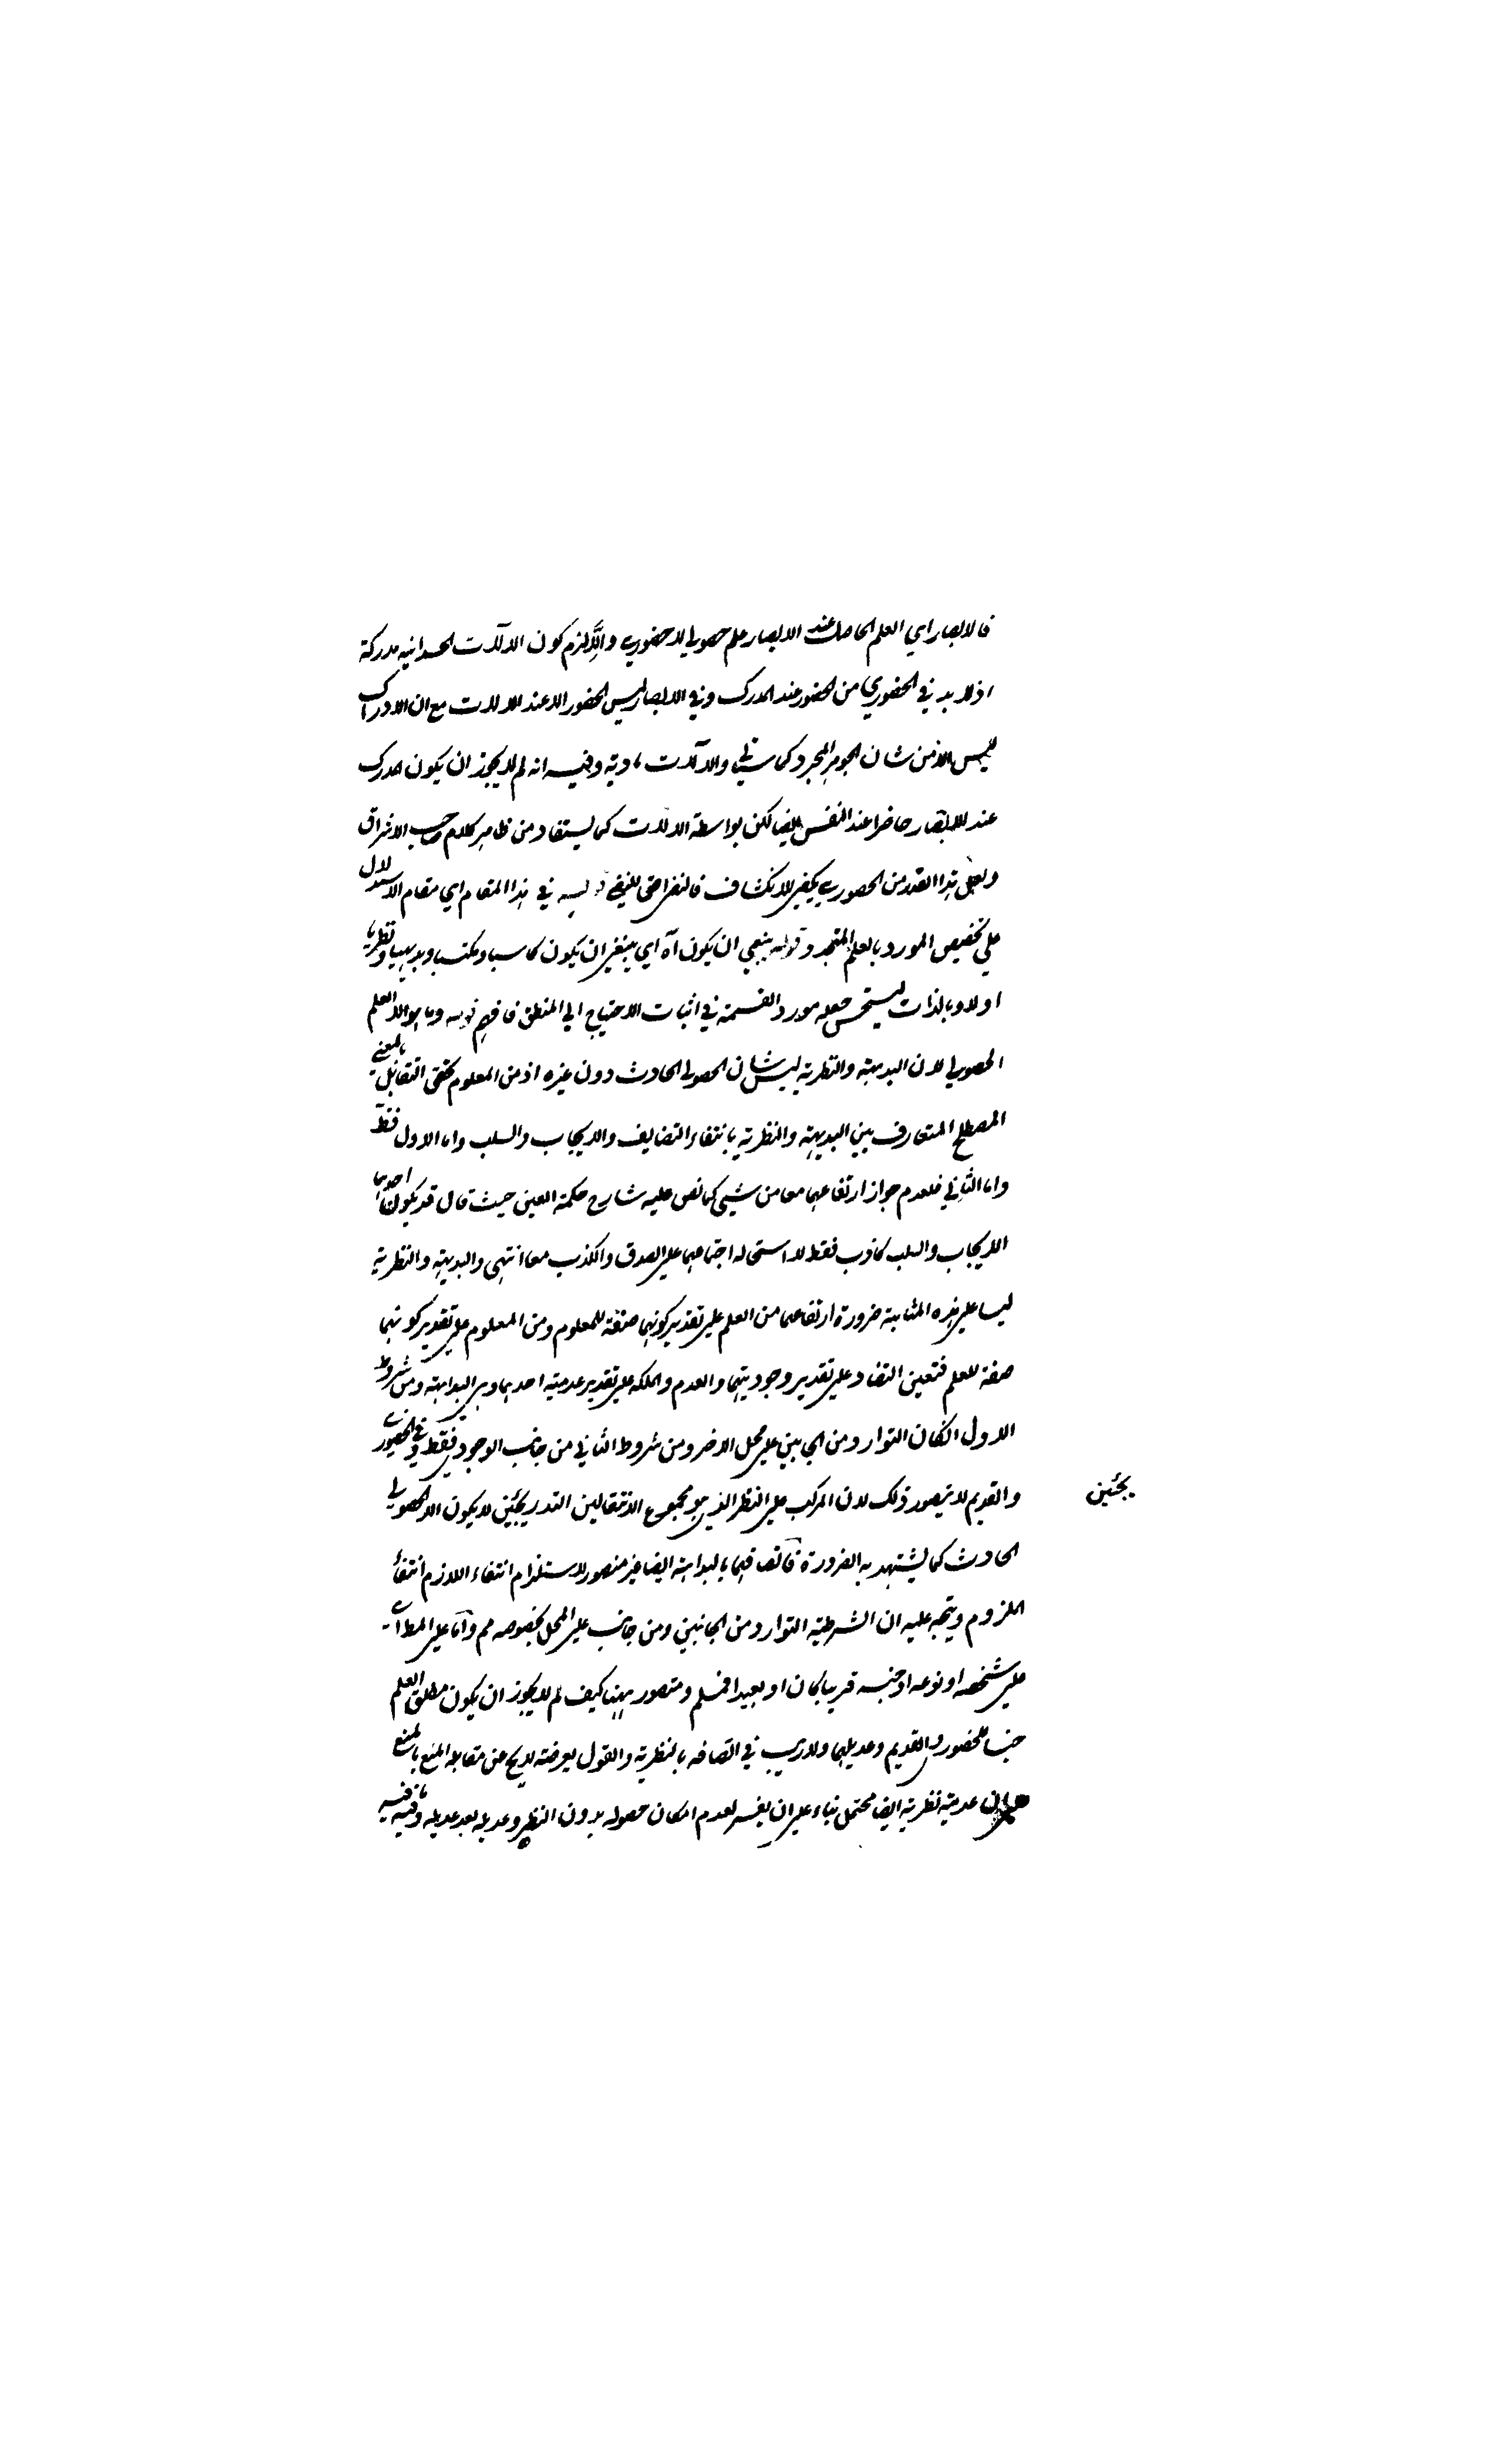 فالابصار اي العلم الحاصل عند الابصار علم حصولي لا حضوري والا لزم كون الآلات الجسدانيه مدركة
اذ لا بد في الحضوري من الحضور عند المدرك وفي الابصار ليس الحضور الا عند الآلات مع ان الادراك
ليس الا من شان الجوهر المجرد كما سياتي والآلات مادية وفيه انه لم لا يجوز ان يكون المدرك
عند الابصار حاضرا عند النفس ايضا لكن بواسطة الآلات كما يستفاد من ظاهر كلام صاحب الاشراق
ولعل هذا القدر من الحضور يكفي للانكشاف قوله في هذا المقام اي مقام الاستدلال
على تخصيص المورد بالعلم المتجدد قوله ينبغي ان يكون آه اي ينبغي ان يكون كاسبا ومكتسبا وبديهيا ونظريا
اولا وبالذات ليستحق جعله مورد القسمة في اثبات الاحتياج الي المنطق فافهم قوله وما هو الا العلم
الحصولي لان البديهية والنظرية ليس شان الحصولي الحادث دون غيره اذ من المعلوم تحقق التقابل بالمعني
المصطلح المتعارف بين البديهية والنظرية بانتفاء التضايف والايجاب والسلب واما الاول فقط
واما الثاني فلعدم جواز ارتفاعهما معا من شيئ كما نص عليه شارح حكمة العين حيث قال قد يكون احدهما
الايجاب والسلب كاذب فقط لاستحالة اجتماعهما على الصدق والكذب معا انتهى والبديهية والنظرية
ليسا على هذه المثابة ضرورة ارتفاعهما من العلم على تقدير كونهما صفة للمعلوم ومن المعلوم على تقدير كونهما
صفة للعلم فتعين التضاد على تقدير وجوديتهما والعدم والملكة على تقدير عدمية احدهما وهي البداهة ومن شروط
الاول امكان التوارد من الجانبين على محل الآخر ومن شروط الثاني من جانب الوجودي فقط وفي الحضوري
والقديم لا يتصور ذلك لان المركب على النظر الذي هو مجموع الانتقالين التدريجيين لا يكون الا الحصولي
يجئين
الحادث كما يشهد به الضرورة فاتصافهما بالبداهة ايضا غير متصور لاستلزام انتفاء اللازم انتفاء
الملزوم ويتجه عليه ان الشرطية التوارد من الجانبين ومن جانب على المحل بخصوصه مم واما على المط
على شخصه او نوعه او جنسه قريبا كان او بعيدا فمسلم ومتصور ههنا كيف لم لا يجوز ان يكون مطلق العلم
جنسا للحضوري والقديم وعديليهما ولا ريب في اتصافه بالنظرية والقول بعرضته لا يخ عن مقابلة المنع بالمنع
عدمية نظرية ايضا محتمل بناء على ان يفسر بعدم امكان حصوله بدون النظر وعديله بعد عديله وفيه ما فيه